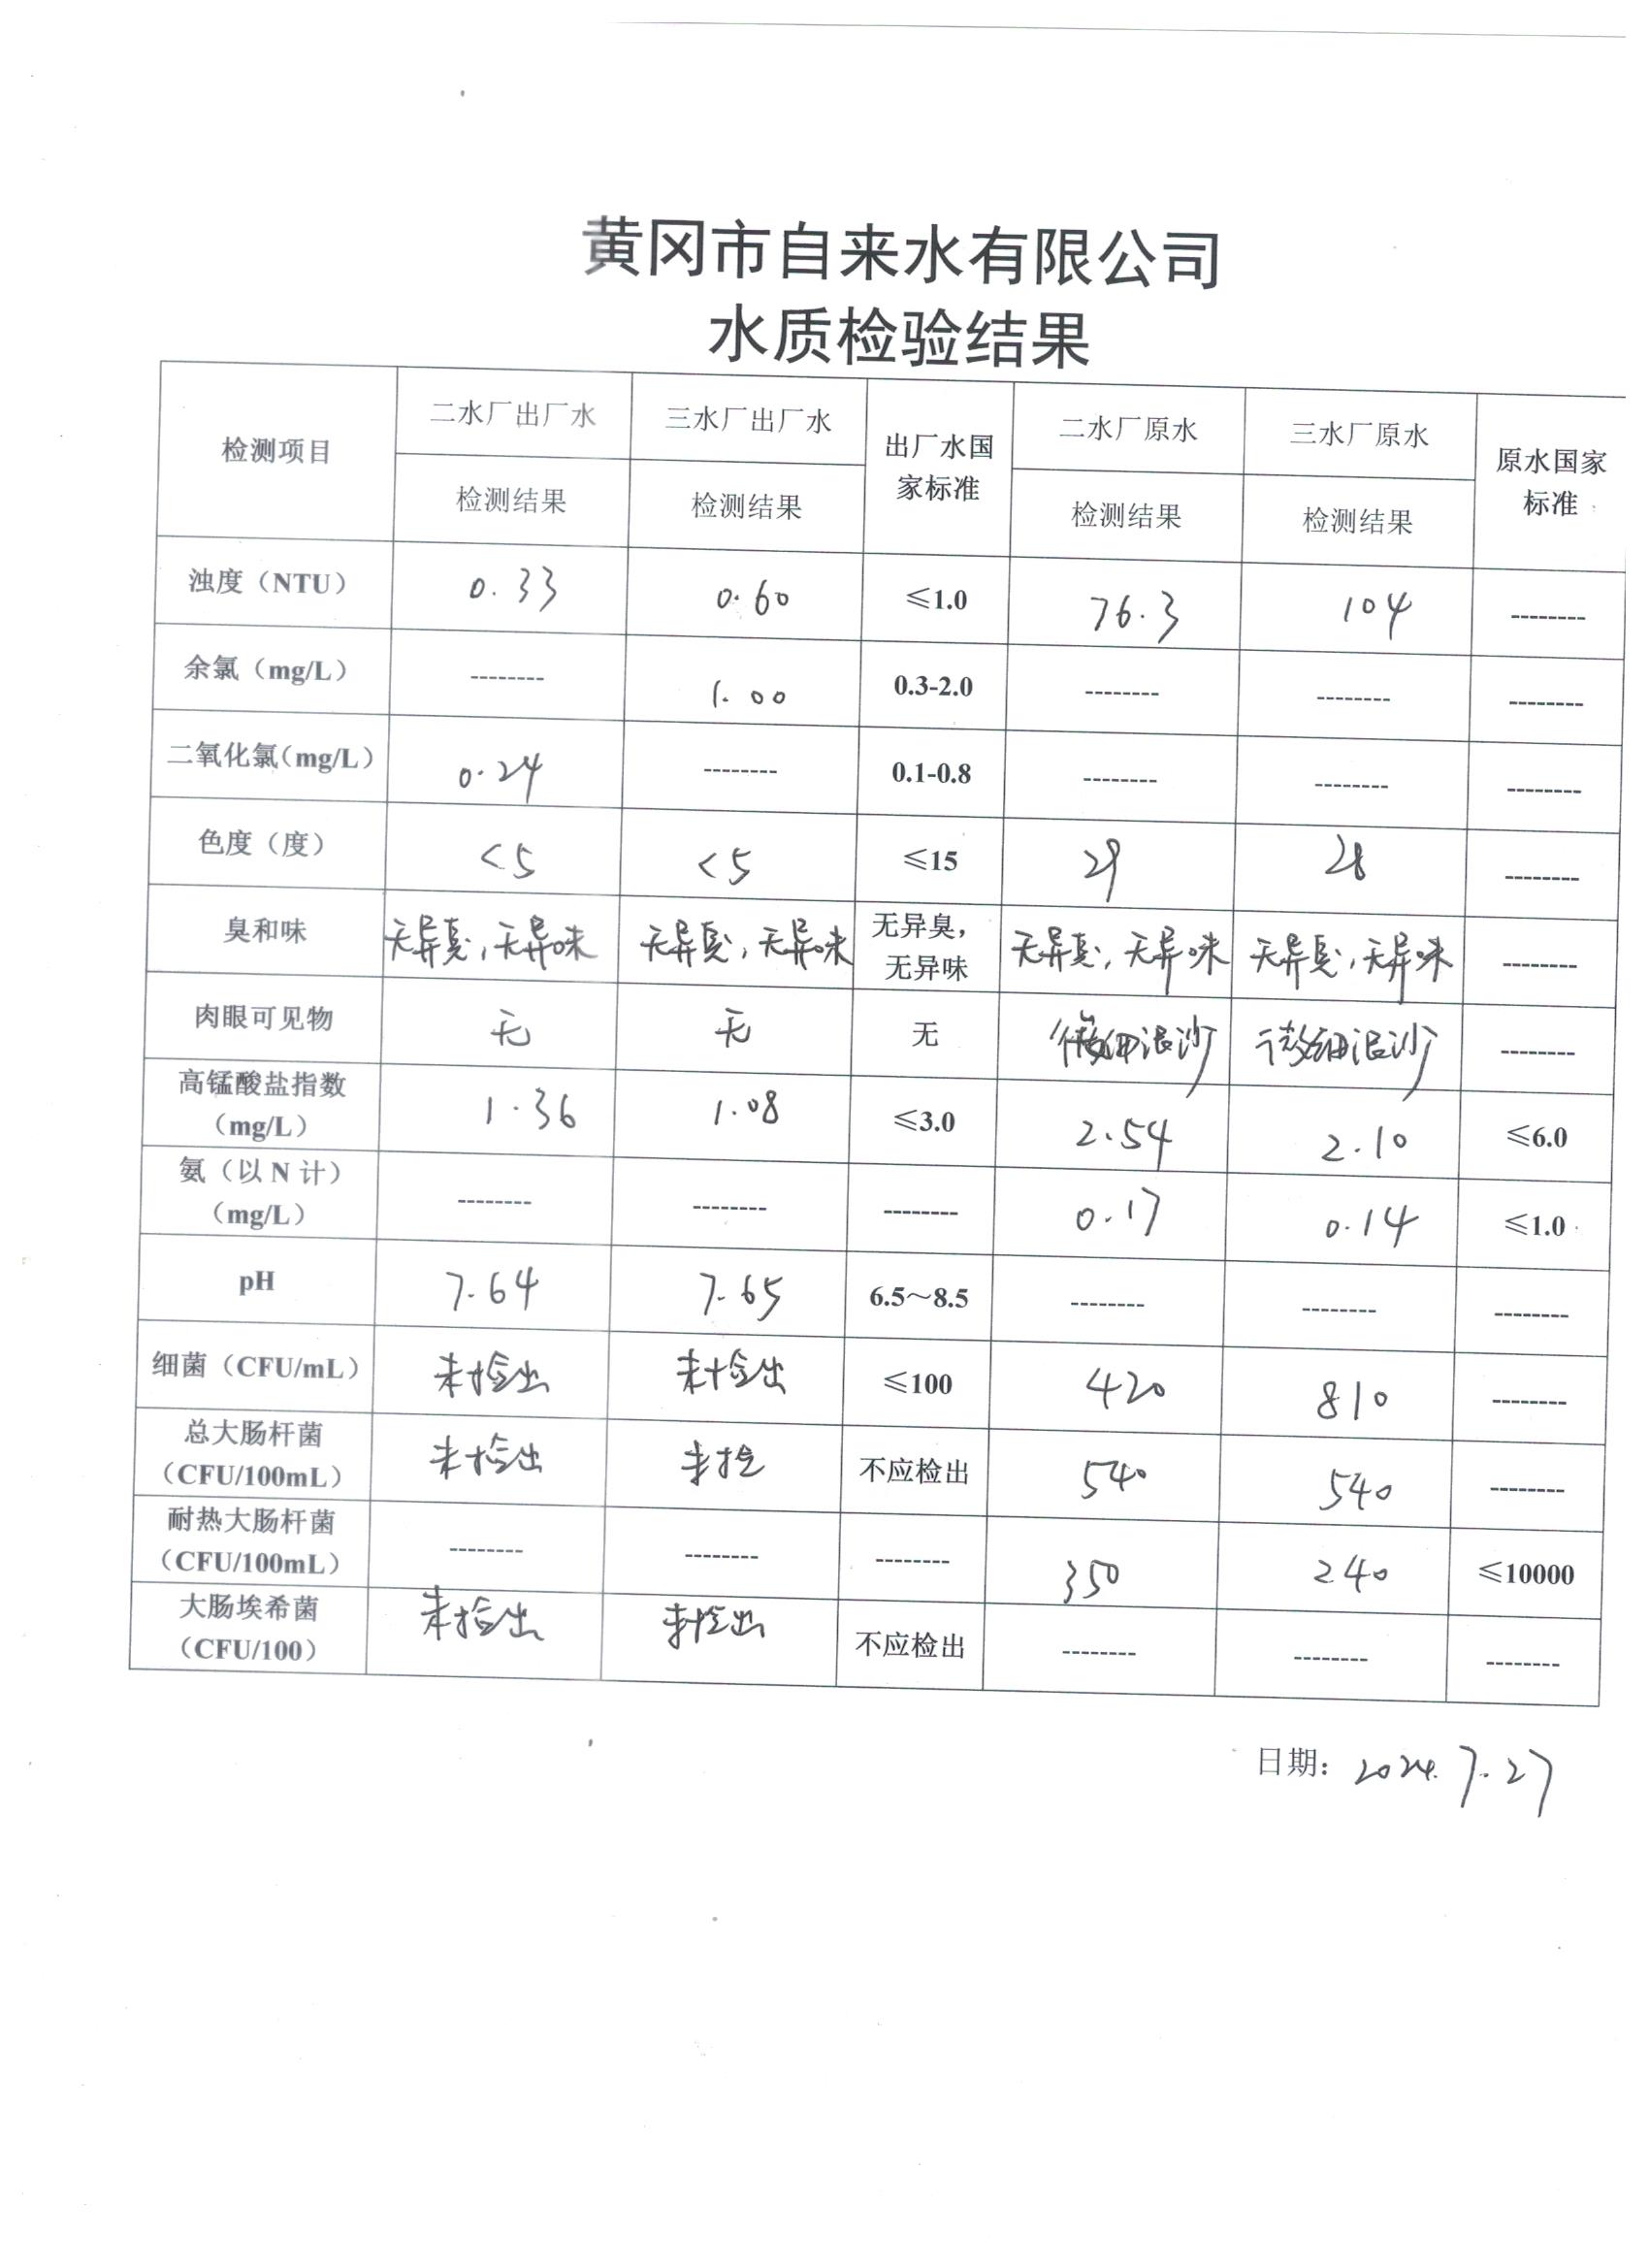 黄冈市自来水有限公司
水质检验结果
检测项目 二水厂出厂水 三水厂出厂水 出厂水国家标准 二水厂原水 三水厂原水 原水国家标准
检测结果 检测结果 检测结果 检测结果
浊度（NTU） 0.33 0.60 ≤1.0 76.3 104 --------
余氯（mg/L） -------- 1.00 0.3-2.0 -------- -------- --------
二氧化氯（mg/L） 0.24 -------- 0.1-0.8 -------- -------- --------
色度（度） <5 <5 ≤15 29 28 --------
臭和味 无异臭,无异味 无异臭,无异味 无异臭，无异味 无异臭,无异味 无异臭,无异味 --------
肉眼可见物 无 无 无 微细泥沙 微细泥沙 --------
高锰酸盐指数（mg/L） 1.36 1.08 ≤3.0 2.54 2.10 ≤6.0
氨（以 N 计）（mg/L） -------- -------- -------- 0.17 0.14 ≤1.0
pH 7.64 7.65 6.5～8.5 -------- -------- --------
细菌（CFU/mL） 未检出 未检出 ≤100 420 810 --------
总大肠杆菌（CFU/100mL） 未检出 未检 不应检出 540 540 --------
耐热大肠杆菌（CFU/100mL） -------- -------- -------- 350 240 ≤10000
大肠埃希菌（CFU/100） 未检出 未检出 不应检出 -------- -------- --------
日期：2024.7.27